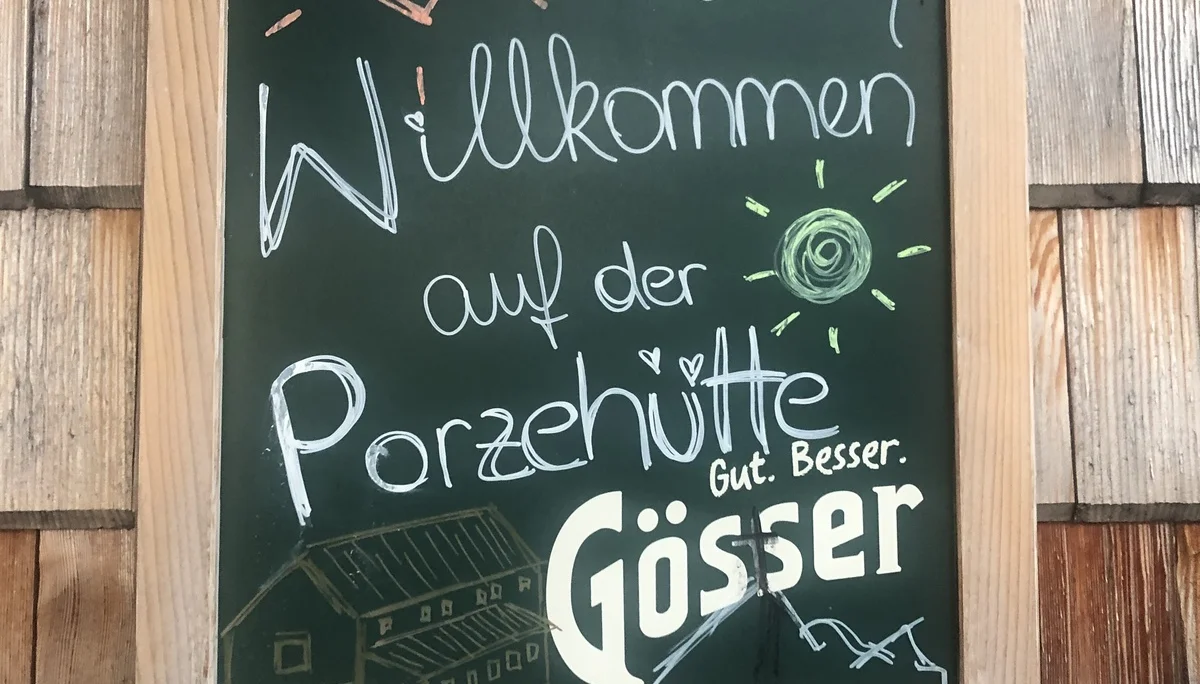 Willkommen
auf der
Porzehütte
Gut. Besser.
Gösser